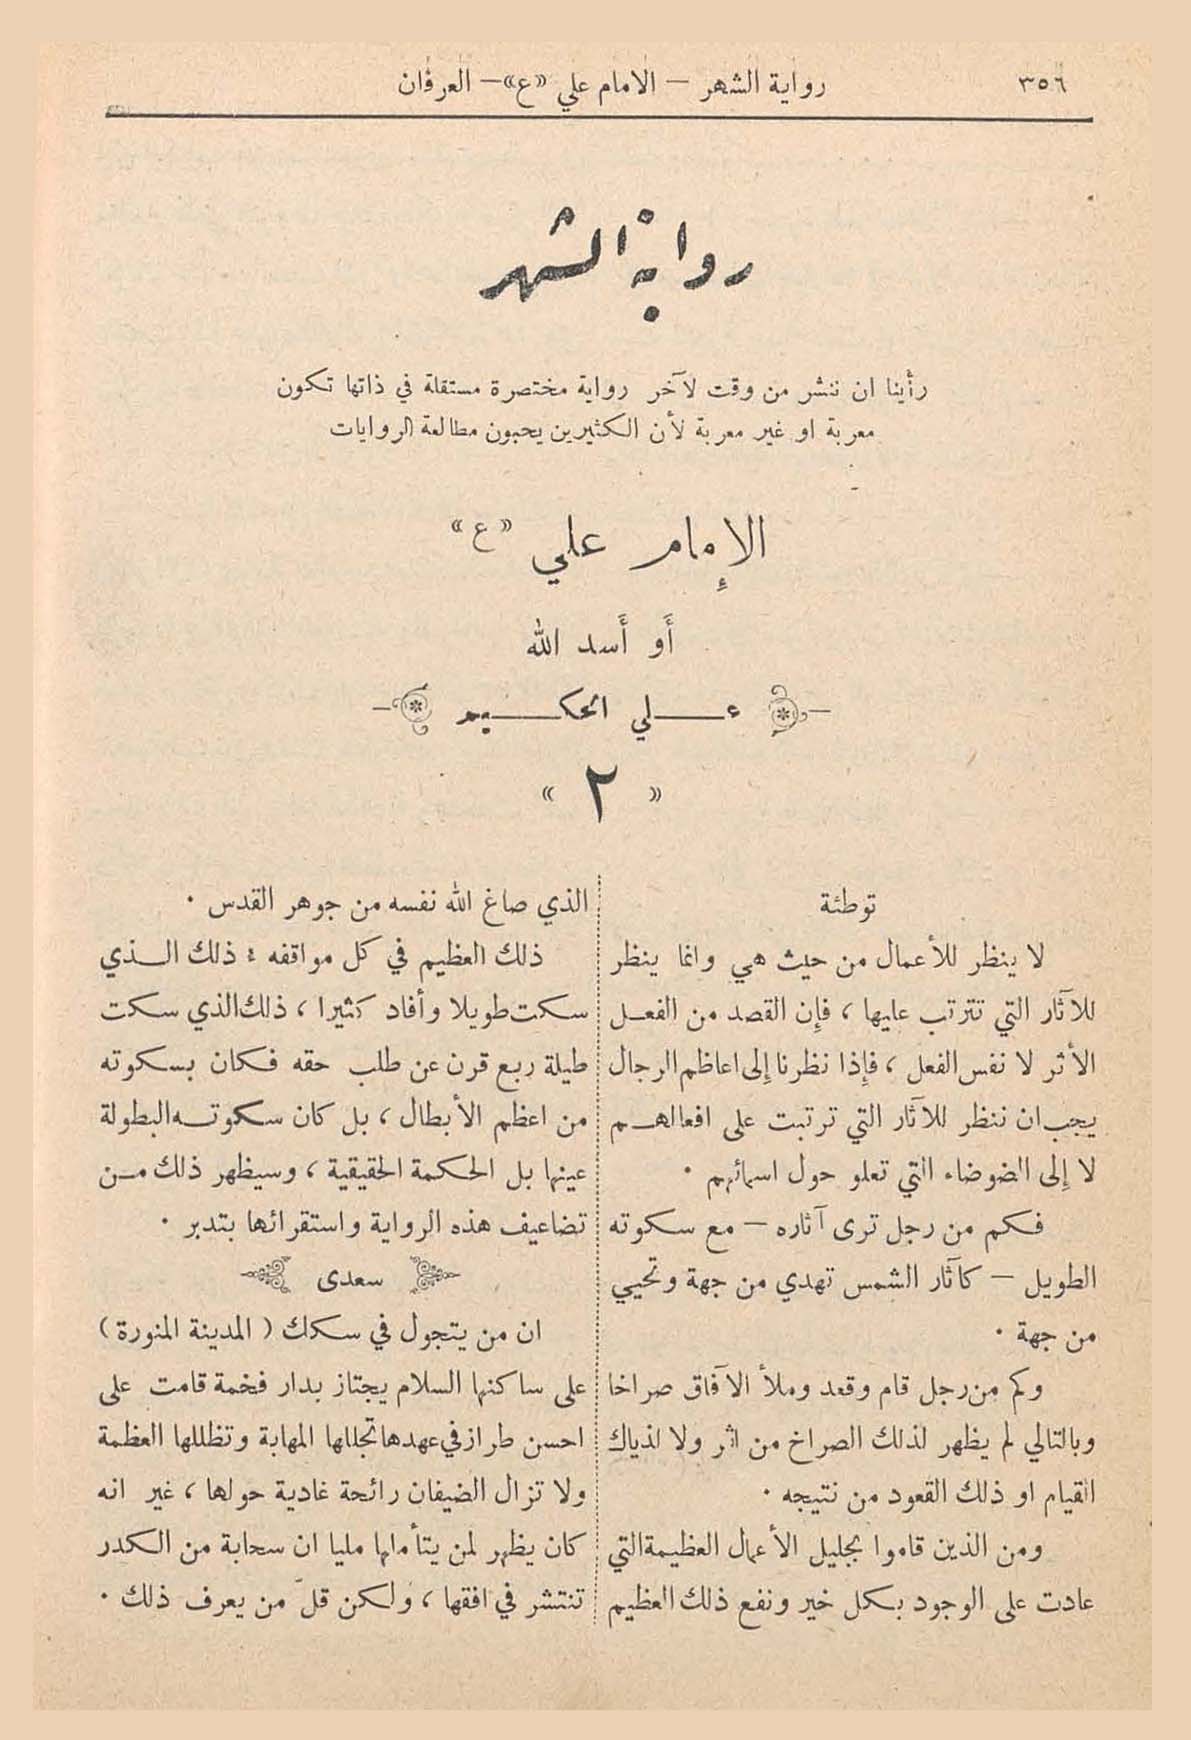 ٣٥٦
رواية الشهر — الامام علي «ع» — العرفان
رواية الشهر
رأينا ان ننشر من وقت لآخر رواية مختصرة مستقلة في ذاتها تكون
معربة او غير معربة لأن الكثيرين يحبون مطالعة الروايات
الإمام علي «ع»
أو أسد الله
علي الحكيم
« ٢ »
توطئة
لا ينظر للأعمال من حيث هي وانما ينظر
للآثار التي تترتب عليها ، فإن القصد من الفعل
الأثر لا نفس الفعل ، فإذا نظرنا إلى اعاظم الرجال
يجب ان ننظر للآثار التي ترتبت على افعالهم
لا إلى الضوضاء التي تعلو حول اسمائهم .
فكم من رجل ترى آثاره — مع سكوته
الطويل — كآثار الشمس تهدي من جهة وتحيي
من جهة .
وكم من رجل قام وقعد وملأ الآفاق صراخا
وبالتالي لم يظهر لذلك الصراخ من اثر ولا لذياك
القيام او ذلك القعود من نتيجه .
ومن الذين قاموا بجليل الأعمال العظيمة التي
عادت على الوجود بكل خير ونفع ذلك العظيم
الذي صاغ الله نفسه من جوهر القدس .
ذلك العظيم في كل مواقفه : ذلك الذي
سكت طويلا وأفاد كثيرا ، ذلك الذي سكت
طيلة ربع قرن عن طلب حقه فكان بسكوته
من اعظم الأبطال ، بل كان سكوته البطولة
عينها بل الحكمة الحقيقية ، وسيظهر ذلك من
تضاعيف هذه الرواية واستقرائها بتدبر .
سعدى
ان من يتجول في سكك ( المدينة المنورة )
على ساكنها السلام يجتاز بدار فخمة قامت على
احسن طراز في عهدها تجللها المهابة وتظللها العظمة
ولا تزال الضيفان رائحة غادية حولها ، غير انه
كان يظهر لمن يتأملها مليا ان سحابة من الكدر
تنتشر في افقها ، ولكن قلّ من يعرف ذلك .